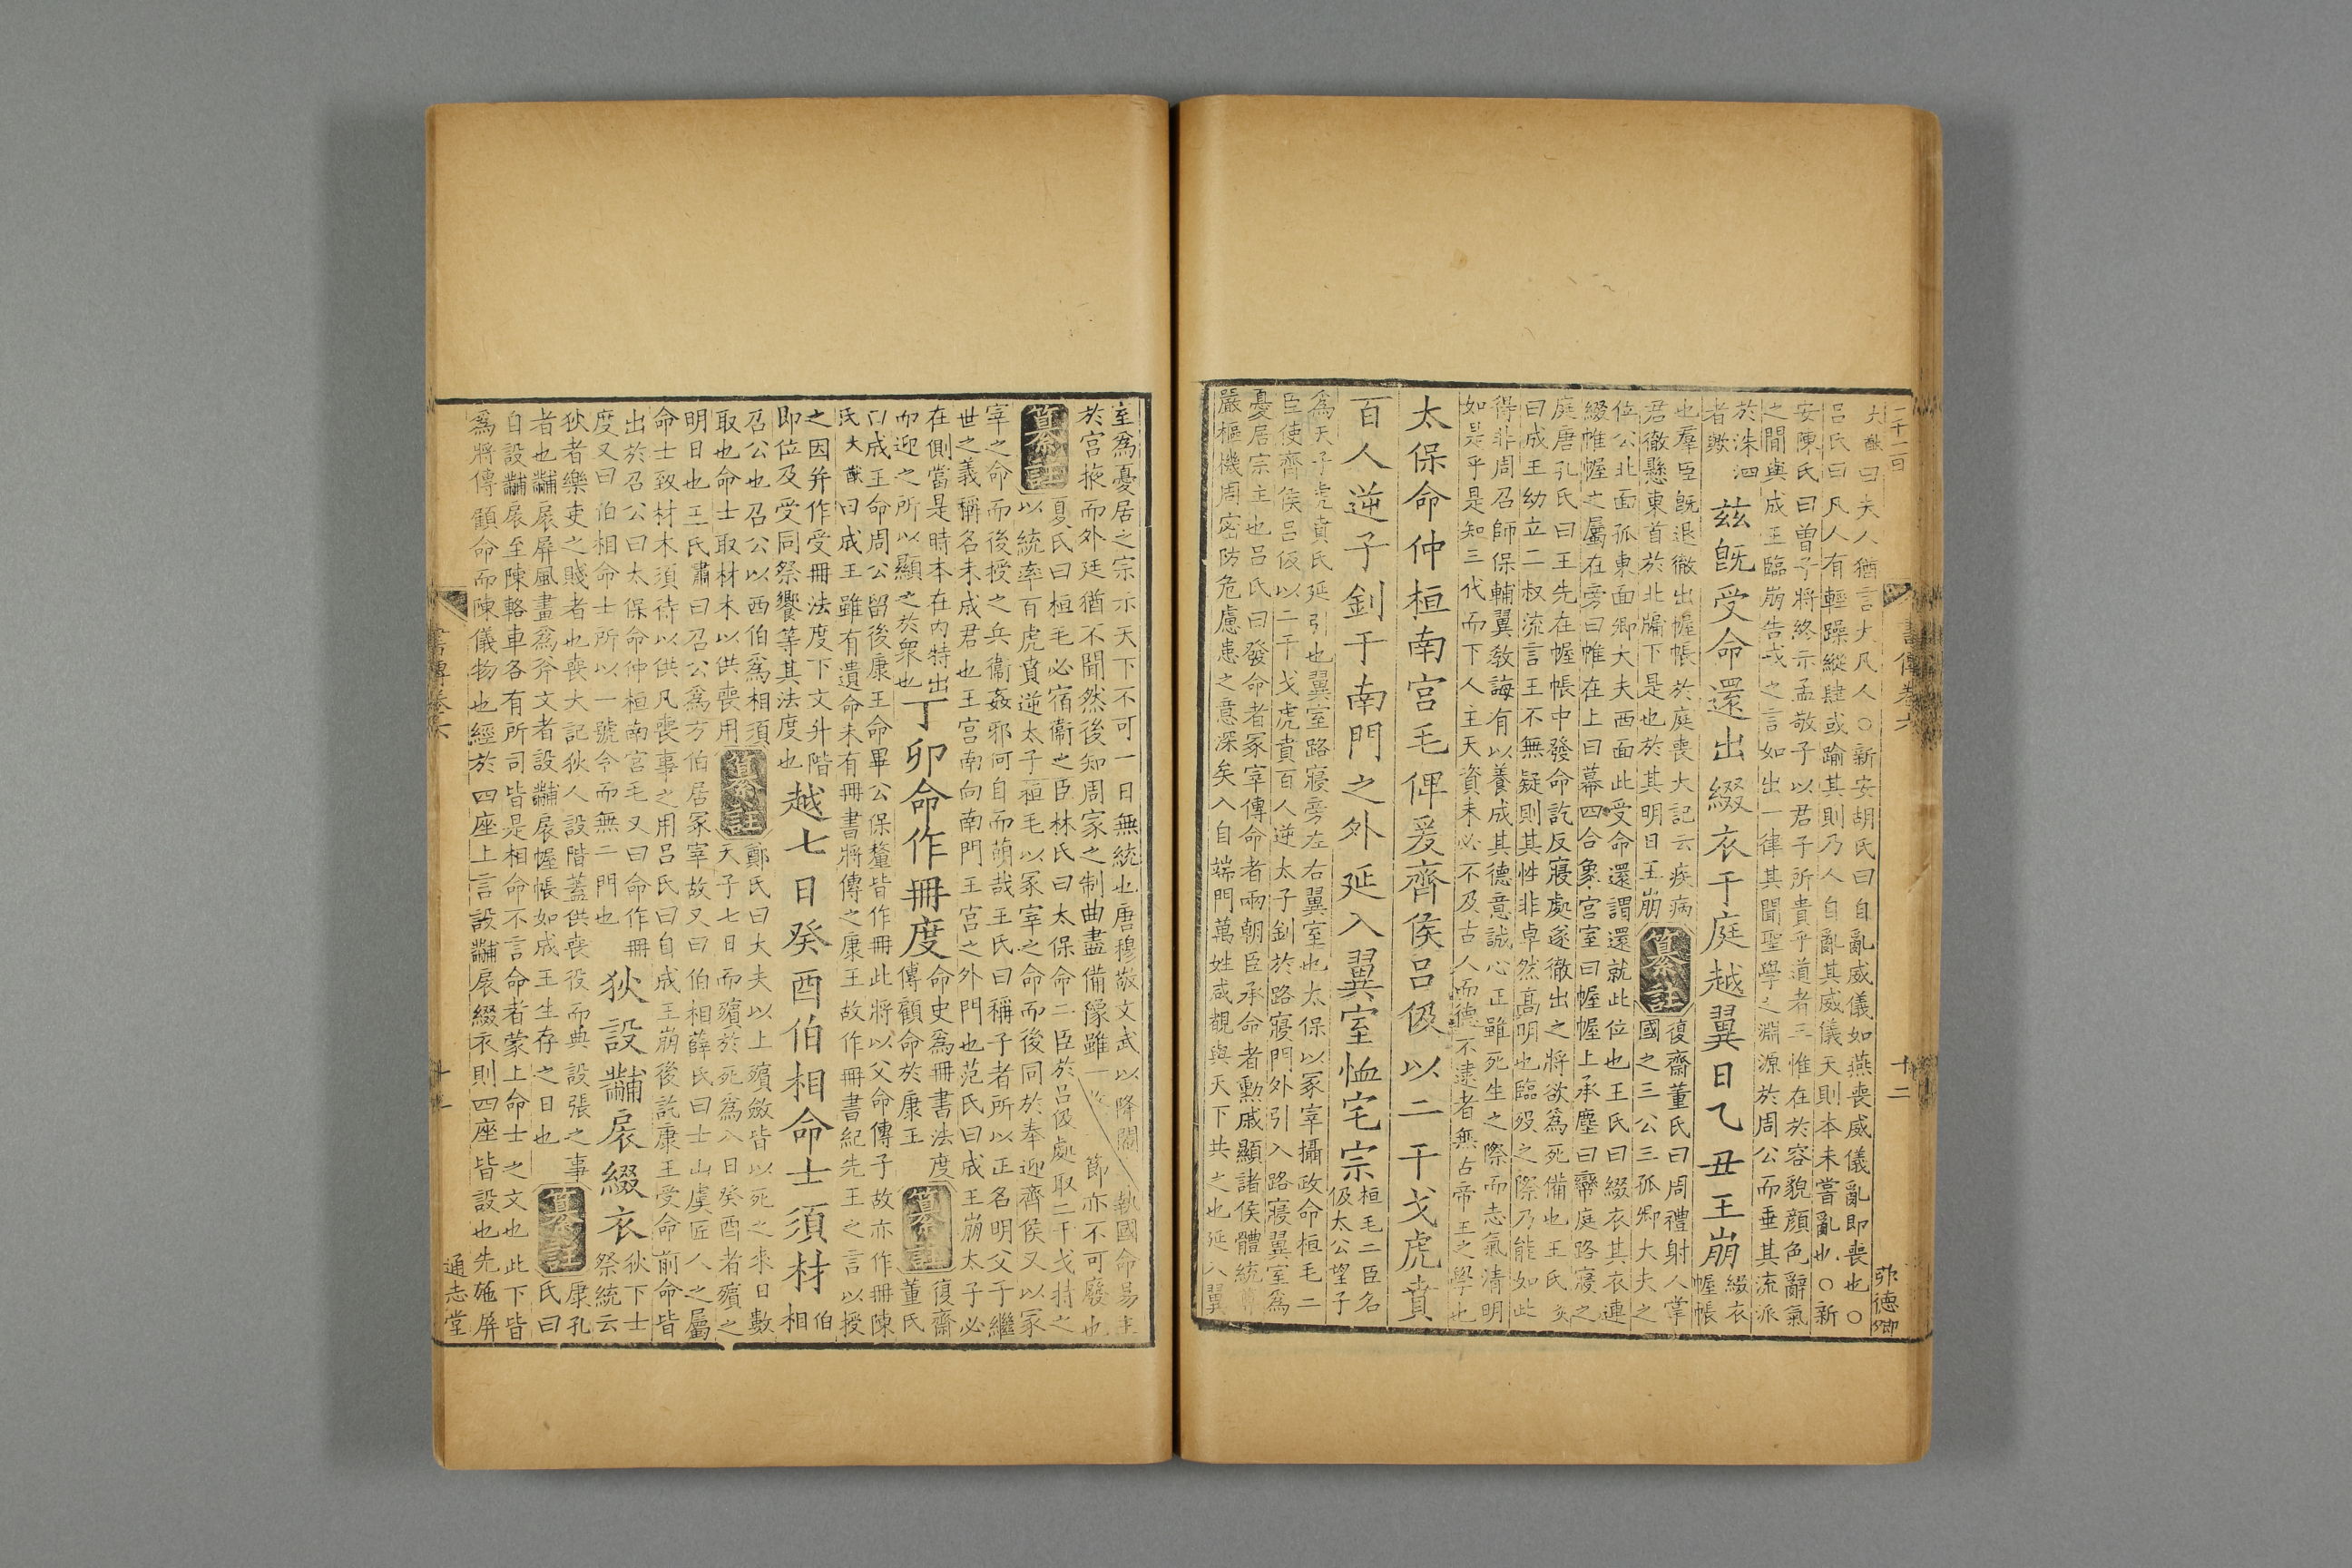 書傳卷六
十二
大猷曰夫人猶言大凡人○新安胡氏曰自亂威儀如燕喪威儀亂即喪也○
呂氏曰凡人有輕躁縱肆或踰其則乃人自亂其威儀天則本未嘗亂也○新
安陳氏曰曾子將終示孟敬子以君子所貴乎道者三惟在於容貌顏色辭氣
之間與成王臨崩告戒之言如出一律其聞聖學之淵源於周公而垂其流派
於洙泗
者歟
茲旣受命還出綴衣于庭越翼日乙丑王崩
綴衣
幄帳
也羣臣旣退徹出幄帳於庭喪大記云疾病
君徹懸東首於北牖下是也於其明日王崩
纂註
復齋董氏曰周禮射人掌
國之三公三孤卿大夫之
位公北面孤東面卿大夫西面此受命還謂還就此位也王氏曰綴衣其衣連
綴帷幄之屬在旁曰帷在上曰幕四合象宮室曰幄幄上承塵曰帟庭路寢之
庭唐孔氏曰王先在幄帳中發命訖反寢處遂徹出之將欲為死備也王氏炎
曰成王幼立二叔流言王不無疑則其性非卓然高明也臨歿之際乃能如此
得非周召師保輔翼敎誨有以養成其德意誠心正雖死生之際而志氣清明
如是乎是知三代而下人主天資未必不及古人而德不逮者無古帝王之學也
太保命仲桓南宮毛俾爰齊侯呂伋以二干戈虎賁
百人逆子釗于南門之外延入翼室恤宅宗
桓毛二臣名
伋太公望子
為天子虎賁氏延引也翼室路寢旁左右翼室也太保以冢宰攝政命桓毛二
臣使齊侯呂伋以二干戈虎賁百人逆太子釗於路寢門外引入路寢翼室為
憂居宗主也呂氏曰發命者冢宰傳命者兩朝臣承命者勳戚顯諸侯體統尊
嚴樞機周密防危慮患之意深矣入自端門萬姓咸覩與天下共之也延入翼
室爲憂居之宗示天下不可一日無統也唐穆敬文武以降閹 執國命易主
於宮掖而外廷猶不聞然後知周家之制曲盡備豫雖一 節亦不可廢也
纂註
夏氏曰桓毛必宿衞之臣林氏曰太保命二臣於呂伋處取二干戈持之
以統率百虎賁逆太子桓毛以冢宰之命而後同於奉迎齊侯又以冢
宰之命而後授之兵衞姦邪何自而萌哉王氏曰稱子者所以正名明父于繼
世之義稱名未成君也王宮南向南門王宮之外門也范氏曰成王崩太子必
在側當是時本在內特出
而迎之所以顯之於衆也
丁卯命作冊度
命史爲冊書法度
傳顧命於康王
纂註
復齋
董氏
曰成王命周公留後康王命畢公保釐皆作冊此將以父命傳子故亦作冊陳
氏大猷曰成王雖有遺命未有冊書將傳之康王故作冊書紀先王之言以授
之因并作受冊法度下文升階
即位及受同祭饗等其法度也
越七日癸酉伯相命士須材
伯
相
召公也召公以西伯爲相須
取也命士取材木以供喪用
纂註
鄭氏曰大夫以上殯斂皆以死之來日數
天子七日而殯於死爲八日癸酉者殯之
明日也王氏肅曰召公爲方伯居冢宰故又曰伯相薛氏曰士山虞匠人之屬
命士致材木須待以供凡喪事之用呂氏曰自成王崩後訖康王受命前命皆
出於召公曰太保命仲桓南宮毛又曰命作冊
度又曰伯相命士所以一號令而無二門也
狄設黼扆綴衣
狄下士
祭統云
狄者樂吏之賤者也喪大記狄人設階蓋供喪役而典設張之事
者也黼扆屏風畫爲斧文者設黼扆幄帳如成王生存之日也
纂註
唐孔
氏曰
自設黼扆至陳輅車各有所司皆是相命不言命者蒙上命士之文也此下皆
爲將傳顧命而陳儀物也經於四座上言設黼扆綴衣則四座皆設也先施屏
書傳卷六
通志堂